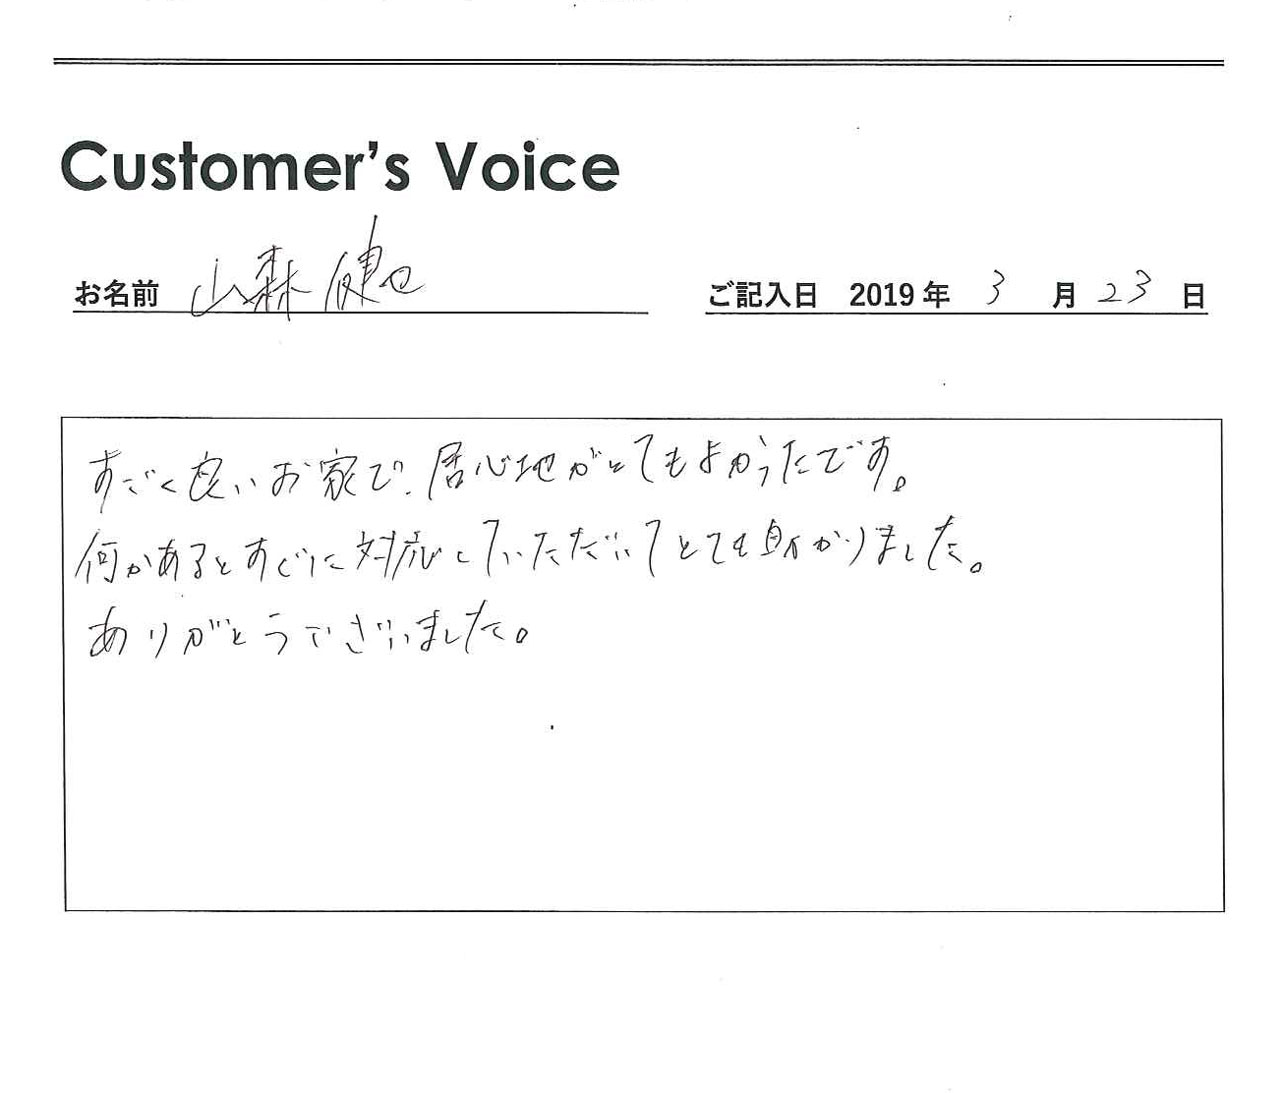 Customer's Voice
お名前 山森 健也 ご記入日 2019 年 3 月 23 日
すごく良いお家で、居心地がとてもよかったです。
何かあるとすぐに対応していただいてとても助かりました。
ありがとうございました。